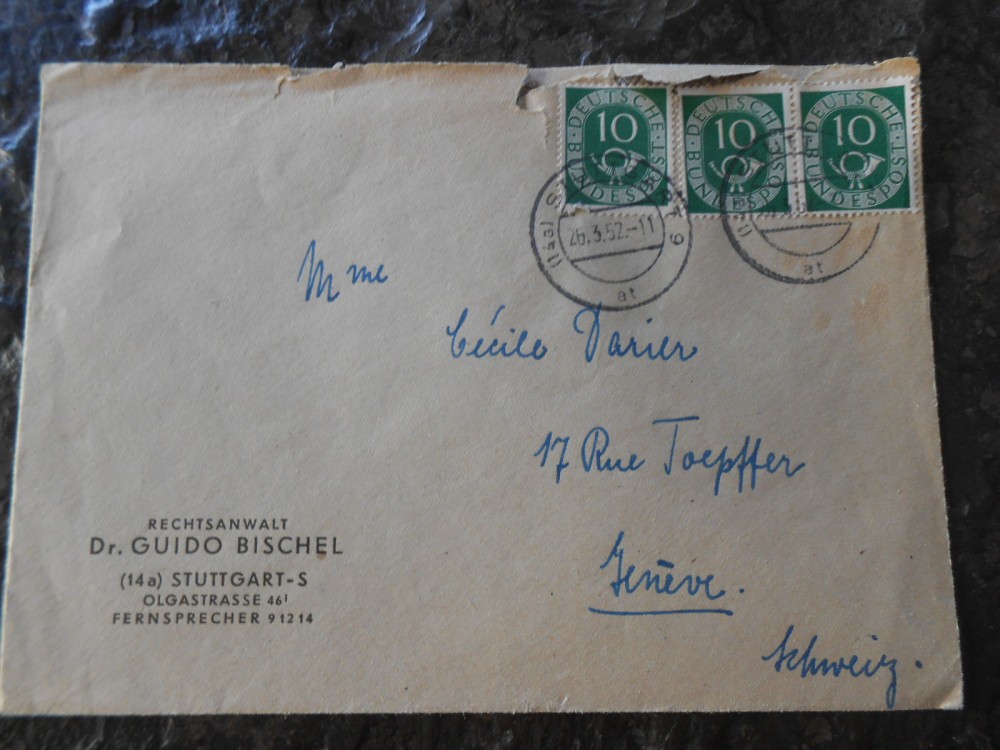 DEUTSCHE BUNDESPOST 10
DEUTSCHE BUNDESPOST 10
DEUTSCHE BUNDESPOST 10
(14a) S
26.3.52.-11
9
at
at
Mme
Cécile Darier
17 Rue Toepffer
Genève.
Schweiz.
RECHTSANWALT
Dr. GUIDO BISCHEL
(14a) STUTTGART-S
OLGASTRASSE 46I
FERNSPRECHER 91214